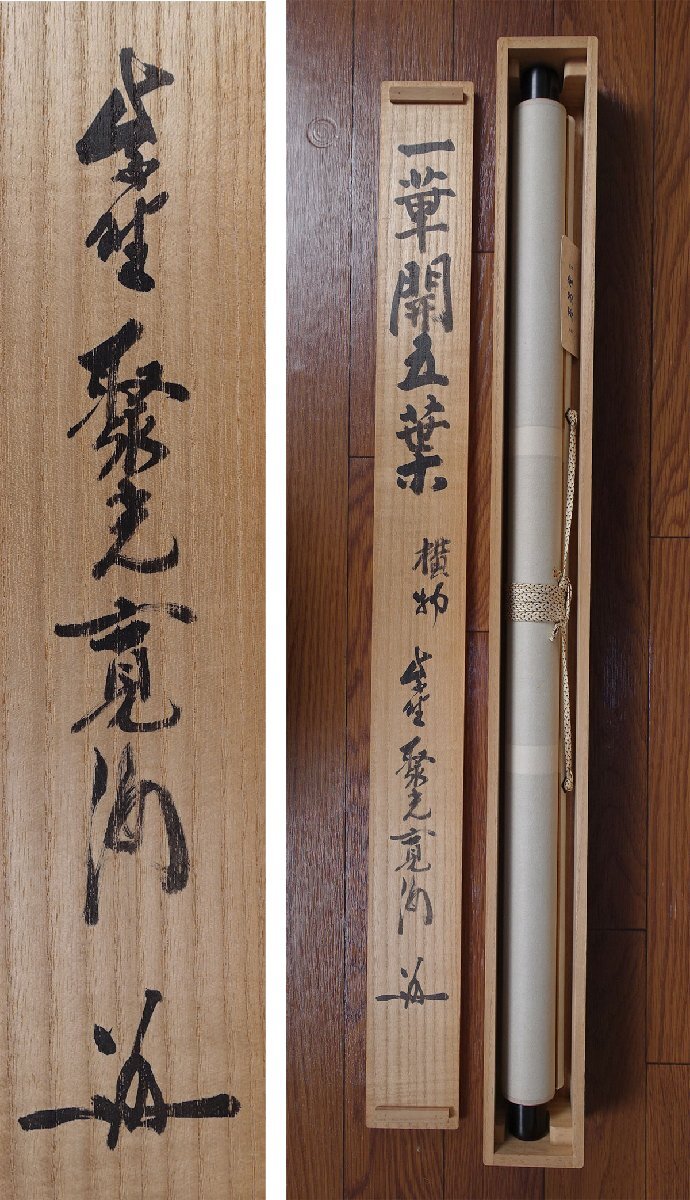 紫野 聚光 寛海
一華開五葉 横物 紫野 聚光 寛海